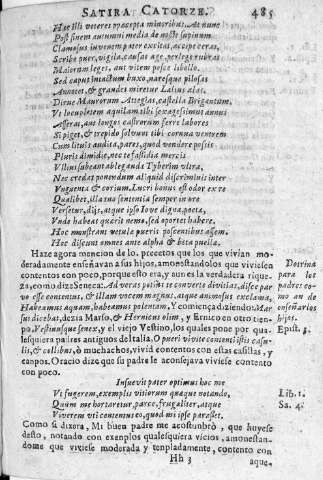 SATIRA CATORZE. 485
Hæc illi veteres præcepta minoribus. At nunc
Post finem autumni media de nocte supinum
Clamosus iuvenem pater excitat, accipe ceras,
Scribe puer, vigila, causas age, perlege rubras
Maiorum leges, aut vitem posce libello.
Sed caput intactum buxo, naresque pilosas
Annotet, & grandes miretur Lælius alas.
Dirue Maurorum Attegias, castella Brigantum,
Vt locupletem aquilam tibi sexagesimus annus
Afferat, aut longos castrorum ferre labores
Si piget, & trepido solvunt tibi cornua ventrem
Cum lituis audita, pares, quod vendere possis
Pluris dimidio, nec te fastidia mercis
Vllius subeant ablegandæ Tyberim vltra,
Nec credas ponendum aliquid discriminis inter
Vnguenta & corium. Lucri bonus est odor ex re
Qualibet, illa tuo sententia semper in ore
Versetur, dijs, atque ipso Iove digna, poeta,
Vnde habeat quærit nemo, sed oportet habere.
Hoc monstrant vetulæ pueris poscentibus assem.
Hoc discunt omnes ante alpha & beta puellæ.
Haze agora mencion de lo. precetos que los que vivian moderadamente
enseñavan a sus hijos, amonestandolos que viviesen
contentos con poco, porque esto era, y aun es la verdadera riqueza,
como dize Seneca: Ad veras potius te converte divitias, disce parvo
esse contentus, & illam vocem magnus, atque animosus exclama,
Habeamus aquam, habeamus polentam, Y comiença diziendo: Marsus
dicebat, dezia Marso, & Hernicus olim, y Ernico en otro tiempo,
Vestinusque senex, y el viejo Vestino, los quales pone por qualesquiera
padres antiguos de Italia. O pueri vivite contenti istis casulis,
& collibus, ò muchachos, vivid contentos con estas casillas, y
campos. Oracio dize que su padre le aconsejava viviese contento
con poco.
Dotrina
para los
padres como
an de
enseñar los
hijos.
Epist. 5.
Insuevit pater optimus hoc me
Vt fugerem, exemplis vitiorum quæque notando,
Quùm me hortaretur, parce, frugaliter, atque
Viverem vti contentus eo, quod mi ipse parasset.
Lib. 1.
Sa. 4.
Como si dixera, Mi buen padre me acostunbrò, que huyese
desto, notando con exenplos qualesquiera vicios, amonestandome
que viviese moderada y tenpladamente, contento con
Hh 3
aque-